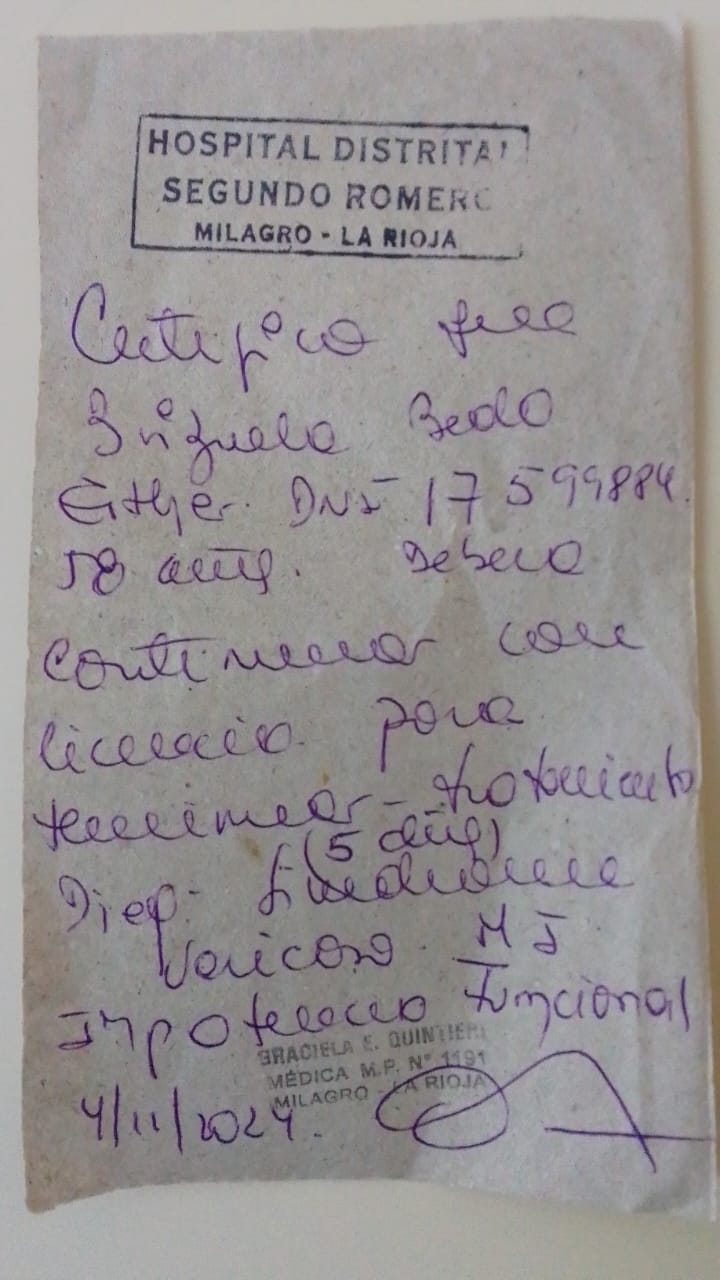 HOSPITAL DISTRITAL
SEGUNDO ROMERO
MILAGRO - LA RIOJA
Certifico que
Brizuela
Esther. DNI 17599884.
58 años. Debera
Continuar con
licencia para
terminar tratamiento
(5 dias)
Diag: Sindrome
Varicoso MI
Impotencia Funcional
GRACIELA E. QUINTIERI
MÉDICA M.P. N° 1191
MILAGRO - LA RIOJA
4/11/2024.